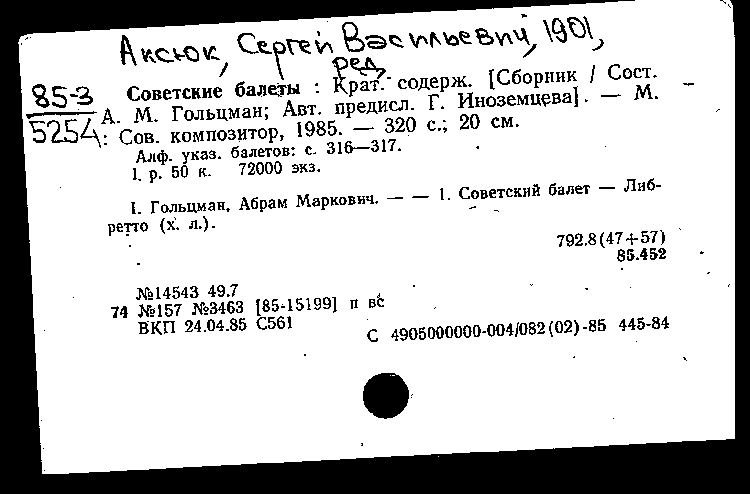 Аксюк, Сергей Васильевич, 1901,
ред.
85-3
5254
Советские балеты : Крат. содерж. [Сборник / Сост.
А. М. Гольцман; Авт. предисл. Г. Иноземцева]. — М.
: Сов. композитор, 1985. — 320 с.; 20 см.
Алф. указ. балетов: с. 316—317.
1 р. 50 к. 72000 экз.
I. Гольцман, Абрам Маркович. — — 1. Советский балет — Либ-
ретто (х. л.).
792.8(47+57)
85.452
№14543 49.7
74 №157 №3463 [85-15199] п вс
ВКП 24.04.85 С561
С 4905000000-004/082(02)-85 445-84